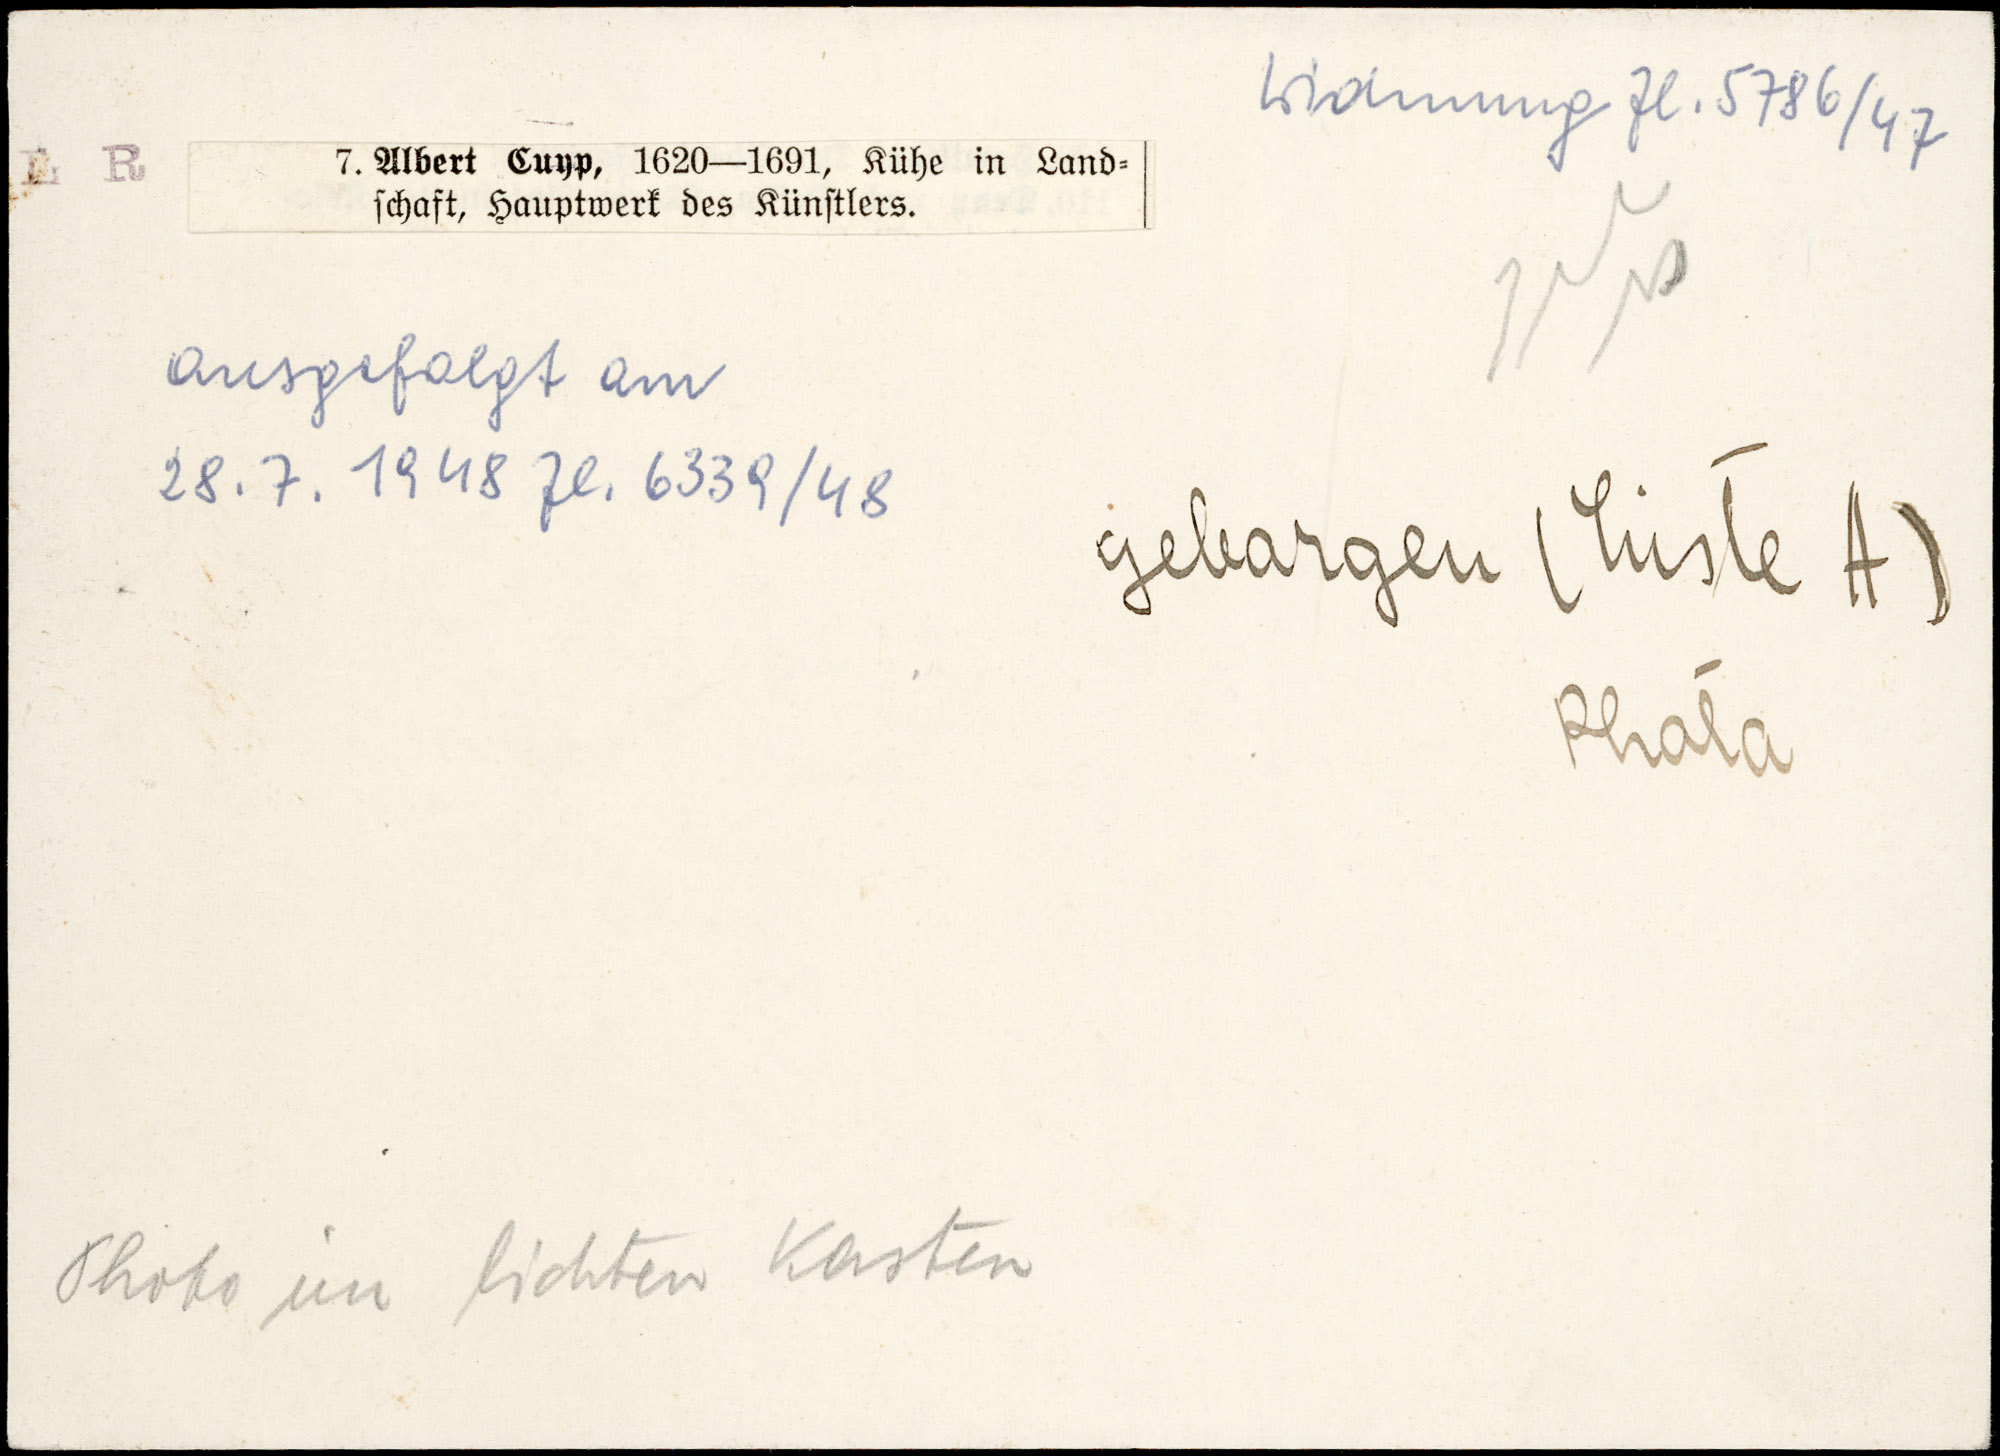 Widmung Zl. 5786/47
E R
7. Albert Cuyp, 1620—1691, Kühe in Land-
schaft, Hauptwerk des Künstlers.
ausgefolgt am
28. 7. 1948 Zl. 6339/48
geborgen (Liste A)
Photo
Photo im lichten Kasten